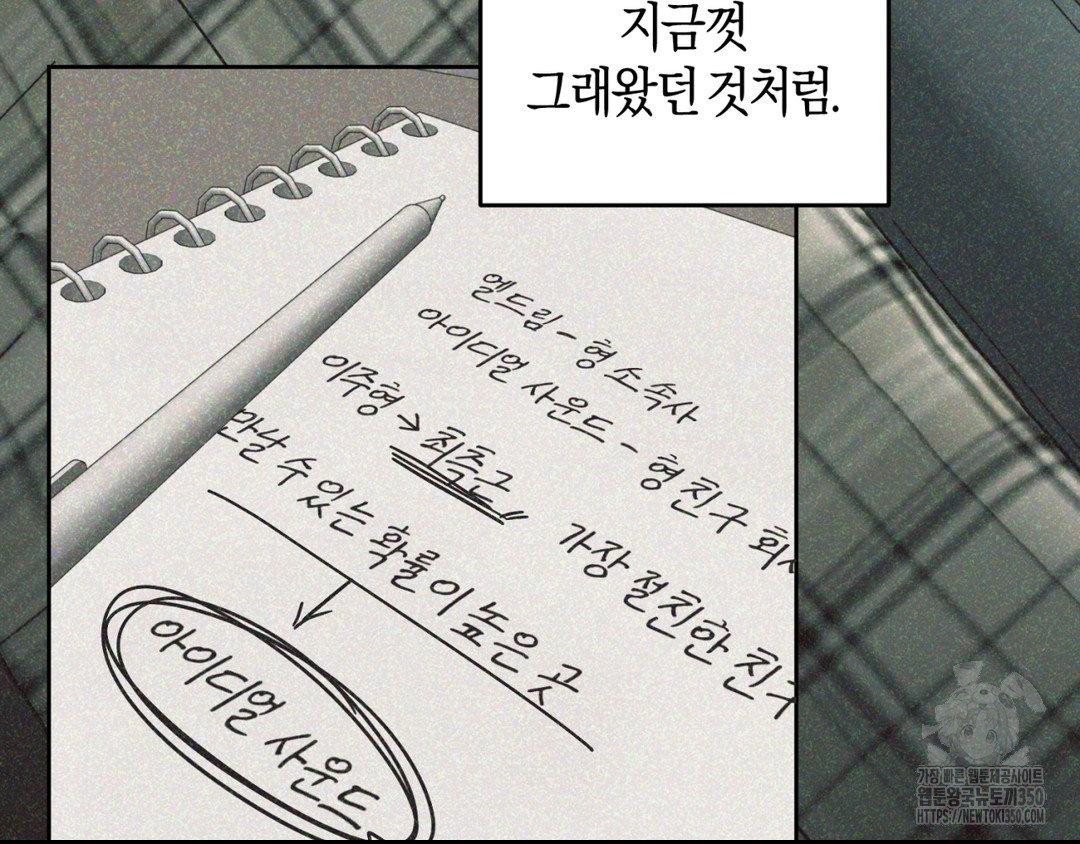 지금껏
그래왔던 것처럼.
엘드림 - 형 소속사
아이디얼 사운드 - 형 친구 회사
이주형 → 최측근 가장 절친한 친구
만날 수 있는 확률이 높은 곳
아이디얼 사운드
가장 빠른 웹툰제공사이트
웹툰왕국뉴토끼350
HTTPS://NEWTOKI350